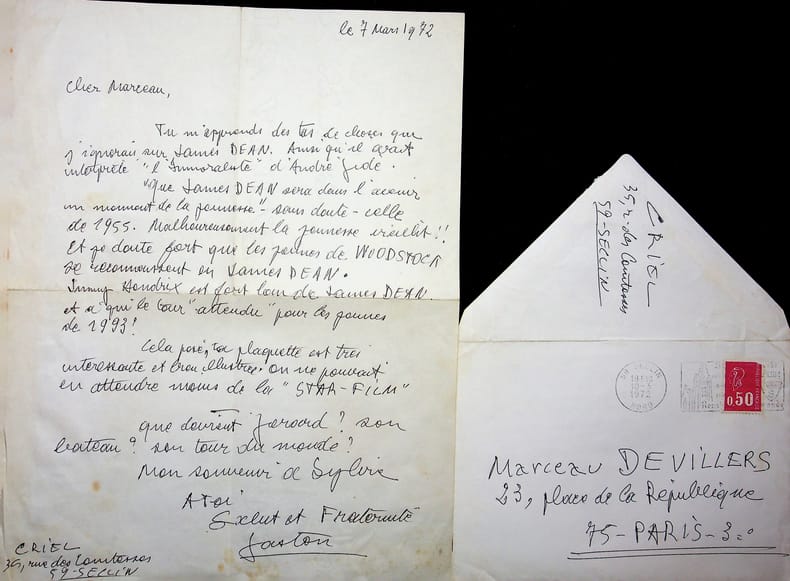 le 7 Mars 1972
Cher Marceau,
Tu m'apprends des tas de choses que
j'ignorais sur James DEAN. Ainsi qu'il avait
interprété "l'Immoraliste" d'André Gide.
"que James DEAN sera dans l'avenir
un moment de la jeunesse" - sans doute - celle
de 1955. Malheureusement la jeunesse vieillit!!
Et je doute fort que les jeunes de WOODSTOCK
se reconnaissent en James DEAN.
Jimmy Hendrix est fort loin de James DEAN.
et à qui le tour "attendu" pour les jeunes
de 1993!
Cela posé, ta plaquette est très
intéressante et bien illustrée. On ne pouvait
en attendre moins de la "STAR-FILM"
que devient Gérard? son
bateau? son tour du monde?
Mon souvenir à Sylvie
A Toi
Salut et Fraternité
Gaston
CRIEL
35, rue des Comtesses
59-SECLIN
CRIEL
35, r. des Comtesses
59-SECLIN
59 SECLIN
1972
0,50
Marceau DEVILLERS
23, place de la République
75-PARIS-3e